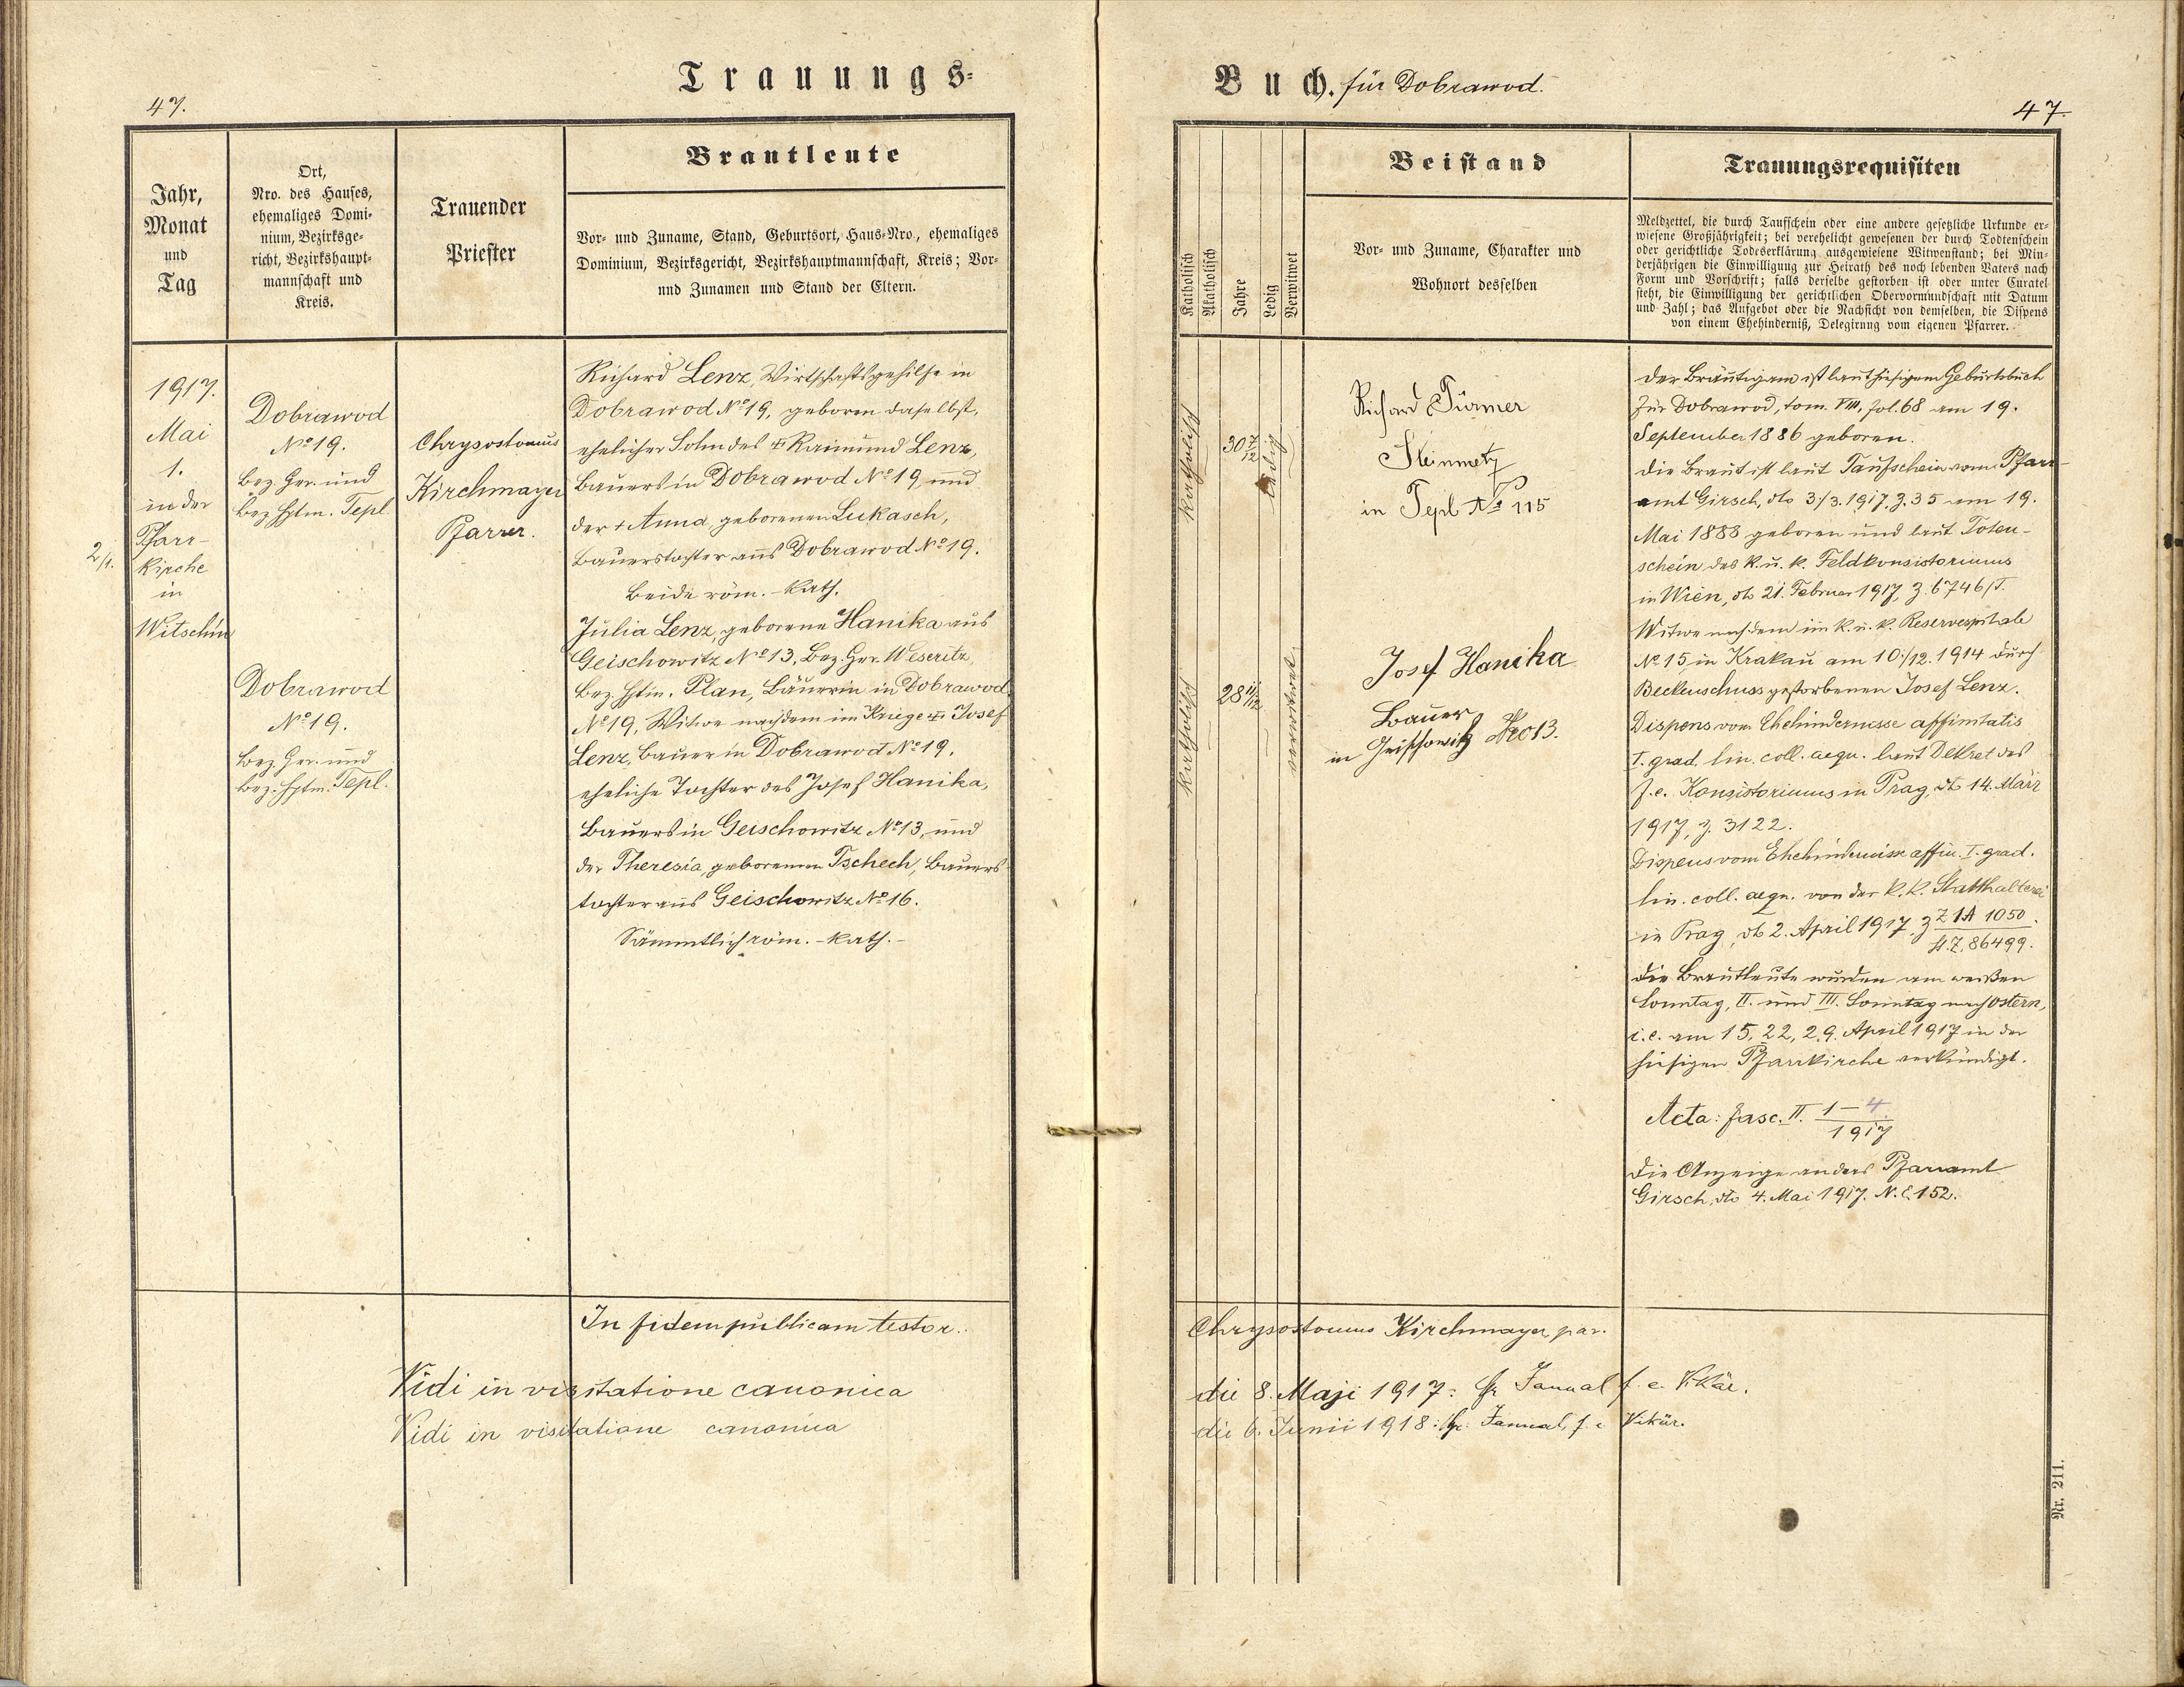 Trauungs-
47.
Jahr,
Monat
und
Tag
Ort,
Nro. des Hauses,
ehemaliges Domi-
nium, Bezirksge-
richt, Bezirkshaupt-
mannschaft und
Kreis.
Trauender
Priester
Brautleute
Vor- und Zuname, Stand, Geburtsort, Haus-Nro., ehemaliges
Dominium, Bezirksgericht, Bezirkshauptmannschaft, Kreis; Vor-
und Zunamen und Stand der Eltern.
2/1.
1917.
Mai
1.
in der
Pfarr-
kirche
in
Witschin
Dobrawod
No 19.
Bez. Ger. und
Bez. Hptm. Tepl
Dobrawod
No 19.
Bez. Ger. und
Bez. Hptm. Tepl.
Chrysostomus
Kirchmayer
Pfarrer.
Richard Lenz, Wirtschaftsgehilfe in
Dobrawod No 19, geboren daselbst,
ehelicher Sohn des + Raimund Lenz,
Bauers in Dobrawod No 19, und
der + Anna, geborenen Lukasch,
Bauerstochter aus Dobrawod No 19.
Beide röm.-kath.
Julia Lenz, geborene Hanika aus
Geischowitz No 13, Bez. Ger. Weseritz,
Bez. Hptm. Plan, Bäuerin in Dobrawod
No 19, Witwe nach dem im Kriege + Josef
Lenz, Bauer in Dobrawod No 19,
eheliche Tochter des Josef Hanika,
Bauers in Geischowitz No 13, und
der Theresia, geborenen Tschech, Bauers-
tochter aus Geischowitz No 16.
Sämmtlich röm.-kath.-
In fidem publicam testor.
Vidi in visitatione canonica
Vidi in visitatione canonica
Buch. für Dobrawod.
47.
Katholisch
Akatholisch
Jahre
Ledig
Verwitwet
Beistand
Vor- und Zuname, Charakter und
Wohnort desselben
Trauungsrequisiten
Meldzettel, die durch Taufschein oder eine andere gesetzliche Urkunde er-
wiesene Großjährigkeit; bei verehelicht gewesenen der durch Todtenschein
oder gerichtliche Todeserklärung ausgewiesene Witwenstand; bei Min-
derjährigen die Einwilligung zur Heirath des noch lebenden Vaters nach
Form und Vorschrift; falls derselbe gestorben ist oder unter Curatel
steht, die Einwilligung der gerichtlichen Obervormundschaft mit Datum
und Zahl; das Aufgebot oder die Nachsicht von demselben, die Dispens
von einem Ehehinderniß, Delegirung vom eigenen Pfarrer.
katholisch
30 7/12
ledig
katholisch
28 11/12
verwitwet
Richard Türmer
Steinmetz
in Tepl No 115
Josef Hanika
Bauer
in Geischowitz Nro 13.
Der Bräutigam ist laut hiesigem Geburtsbuch
für Dobrawod, tom. VIII, fol. 68 am 19.
September 1886 geboren.
Die Braut ist laut Taufschein vom Pfarr-
amt Girsch, dto 3./3. 1917, Z. 35 am 19.
Mai 1888 geboren und laut Toten-
schein des k. u. k. Feldkonsistoriums
in Wien, dto 21. Februar 1917, Z. 6746/I.
Witwe nach dem im k. u. k. Reservespitale
No 15 in Krakau am 10./12. 1914 durch
Beckenschuss gestorbenen Josef Lenz.
Dispens vom Ehehindernisse affinitatis
I. grad. lin. coll. aequ. laut Dekret des
f. e. Konsistoriums in Prag, dto 14. März
1917, Z. 3122.
Dispens vom Ehehindernisse affin. I. grad.
lin. coll. aequ. von der k. k. Statthalterei
in Prag, dto 2. April 1917, Z Z 1A 1050.
St. Z. 86499.
Die Brautleute wurden am weißen
Sonntag, II. und III. Sonntag nach Ostern,
i. e. am 15, 22, 29. April 1917 in der
hiesigen Pfarrkirche verkündigt.
Acta: fasc. II. 1-4
1917
Die Anzeige an das Pfarramt
Girsch, dto 4. Mai 1917. N. E. 152.
Chrysostomus Kirchmayer par.
die 8. Maji 1917: Fr. Janual f. e. Vikär.
die 6. Junii 1918: Fr. Janual, f. e. Vikär.
Nr. 211.